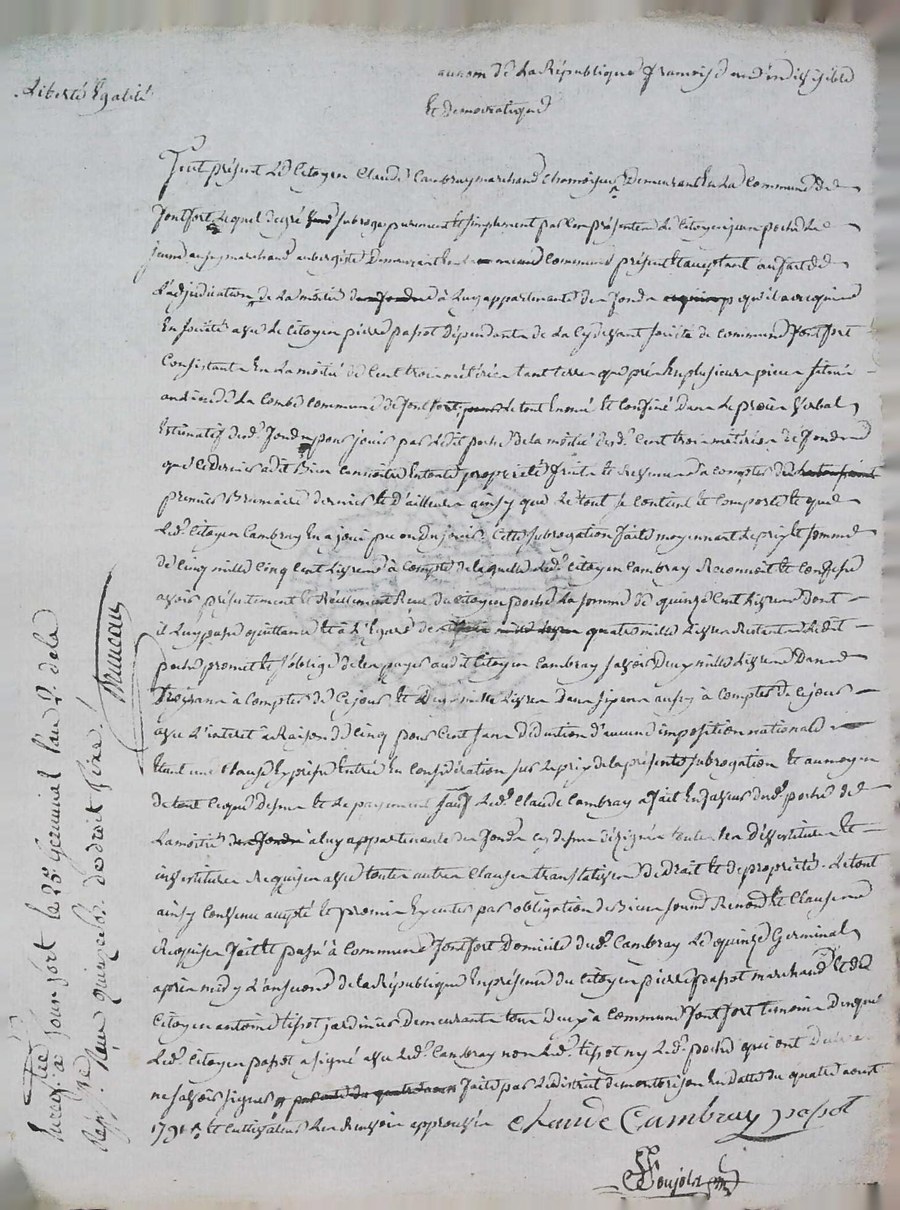 Liberté Égalité
au nom de La République francaise une indivisible
Et democratique
fut présent Le Citoyen Claude Cambray marchand chamoiseur Demeurant En La Commune De
fontfort Lequel de gré subroge purement et simplement par Les présentes Le Citoyen jean poché Le
jeune marchand aubergiste Demeurant En La meme Commune présent et acceptant au fait de
L'adjudication de La moitié a Luy appartenante des fonds qu'il a acquis
En société avec Le Citoyen pierre papot dépendants de La Cy devant de commune fontfort
Consistants En La moitié de Cent trois métérées tant terre que pré En plusieurs pieces situés
de La Combe commune de fontfort Le tout Enoncé Et Confiné Dans Le procès Verbal
Estimatif desd. fonds pour jouir par Ledit poché de la moitié desd. Cent trois métérées de fonds
que Ce dernier a dit Bien connoitre En toute propriété fruits et revenus a compter du
premier Brumaire dernier Et D'ailleurs ainsy que Le tout se Contient Et Comporte Et que
Led. Citoyen Cambray En a joui pu ou du jouir. Cette subrogation faite moyennant Le prix Et somme
de Cinq mille Cinq Cent Livres à Compte de laquelle Led. Citoyen Cambray Reconnoit Et Confesse
avoir présentement Et Réellement Reçu du Citoyen poché La somme de quinze Cent Livres Dont
il Luy passe quittance Et à L'Egard des quatre mille Livres Restantes Ledit
poché promet Et s'oblige de Les payer audit Citoyen Cambray savoir Deux mille Livres Dans
trois ans à Compter de Ce jour Et Deux mille Livres Dans six ans aussy à Compter de Ce jour
avec L'interet à Raison de Cinq pour Cent sans Déduction d'aucune imposition nationale
Etant une Clause Expresse Entrée En Considération sur Le prix de la présente subrogation Et au moyen
de tout Ce que Dessus Et Le payement sauf Led. Claude Cambray a fait En faveur dud. poché de
La moitié à luy appartenante des fonds cy dessus désignés toutes Les Dévestitures Et
investitures Requises avec toutes autres Clauses translatives De Droit Et de propriété. Le tout
ainsy Convenu accepté Et promis Exécuter par obligation de Biens soumis Renoncé Et Clauses
Requises fait Et passé à Commune fontfort Domicile dud. Cambray Le quinze Germinal
après midy L'an second de la République En présence du Citoyen pierre papot marchand Et de
Citoyen antoine tissot jardinier Demeurants tous Deux à Commune fontfort temoins
Led. Citoyen papot a signé avec Led. Cambray non Led. tissot ny Led. poché qui ont
ne savoir signer faite par Le district de montbrison En datte du quatre aoust
1791 Et approuvés Claude Cambray papot
Goujolas
Enregistré à fontfort Le 25 Germinal L'an 2 de la
Rep. Reçu quinze Led. de droit fixé
Bruneau